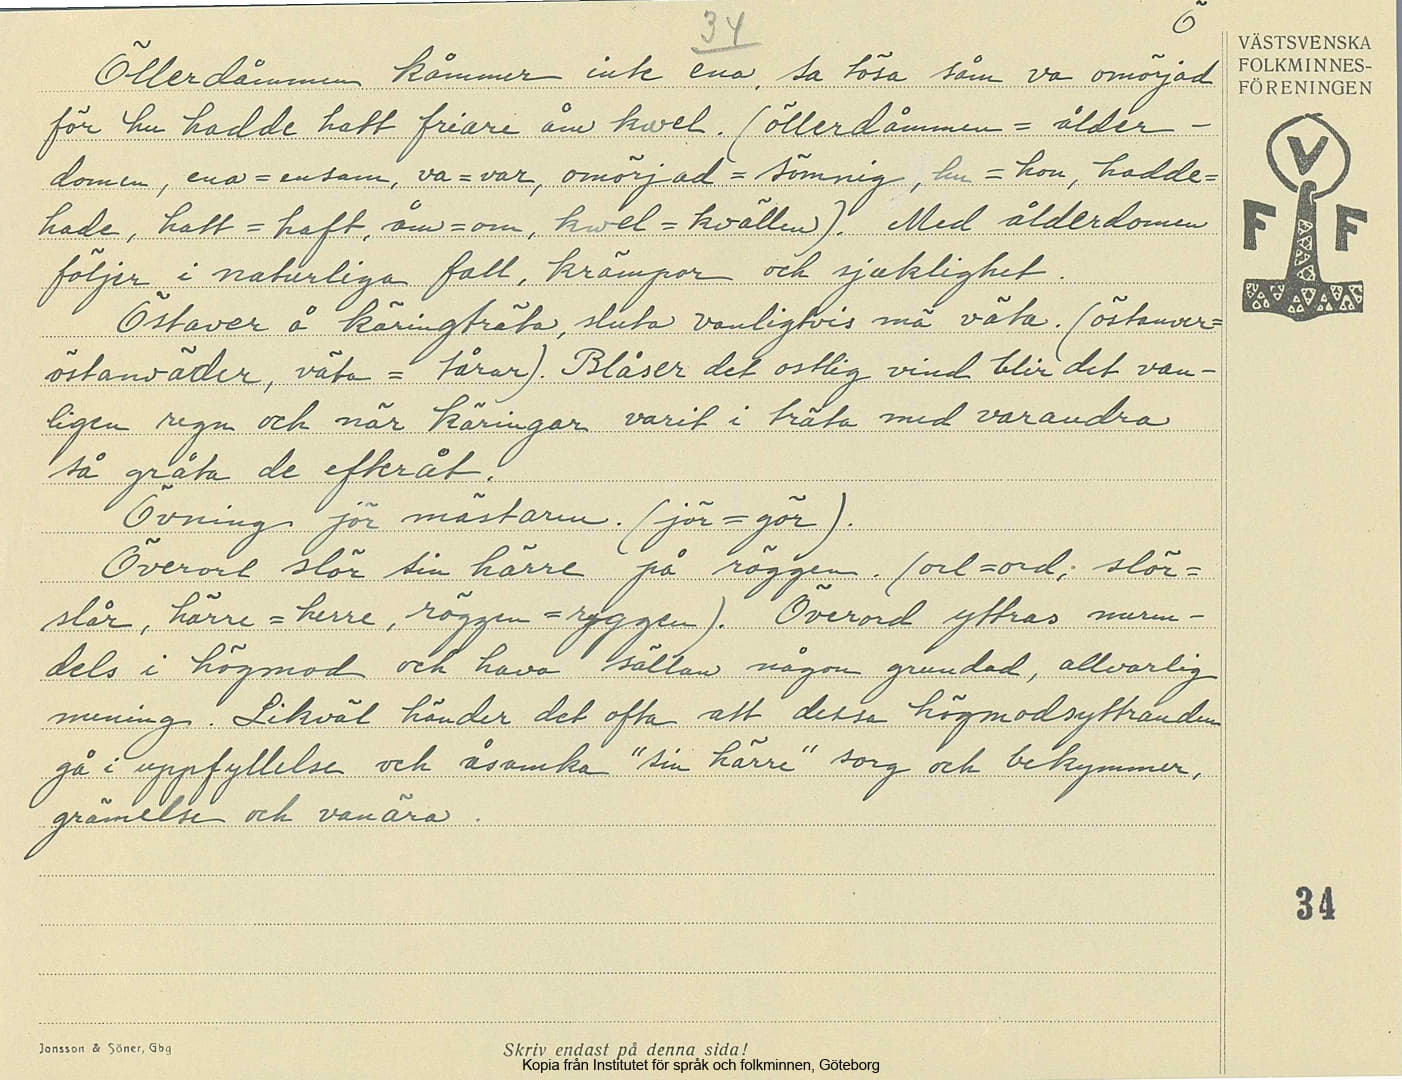 34
Ö
VÄSTSVENSKA
FOLKMINNES-
FÖRENINGEN
V
F F
Öllerdåmmen kåmmer inte ena, sa tösa såm va omörjad
för hu hadde hatt friare åm kwel. (öllerdåmmen = ålder-
domen, ena = ensam, va = var, omörjad = sömnig, hu = hon, hadde=
hade, hatt = haft, åm = om, kwel = kvällen). Med ålderdomen
följer i naturliga fall, krämpor och sjuklighet.
Östaver å käringträta, sluta vanligtvis mä väta. (östanver=
östanväder, väta = tårar). Blåser det ostlig vind blir det van-
ligen regn och när käringar varit i träta med varandra
så gråta de efteråt.
Övning jör mästaren. (jör = gör).
Överorl slör sin härre på röggen. (orl = ord, slör=
slår, härre = herre, röggen = ryggen). Överord yttras meren-
dels i högmod och hava sällan någon grundad, allvarlig
mening. Likväl händer det ofta att dessa högmodsyttranden
gå i uppfyllelse och åsamka "sin härre" sorg och bekymmer,
grämelse och vanära.
34
Jonsson & Söner, Gbg
Skriv endast på denna sida!
Kopia från Institutet för språk och folkminnen, Göteborg